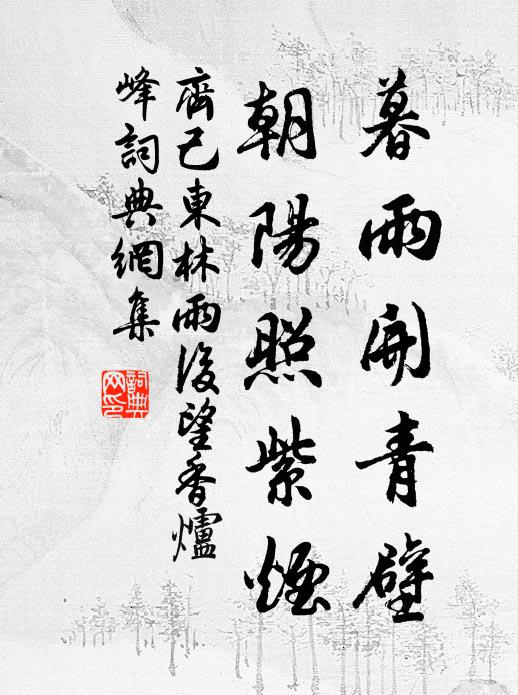 暮雨開青壁
朝陽照紫煙
齊己東林雨後望香爐
峰詞典網集
詞典
网印